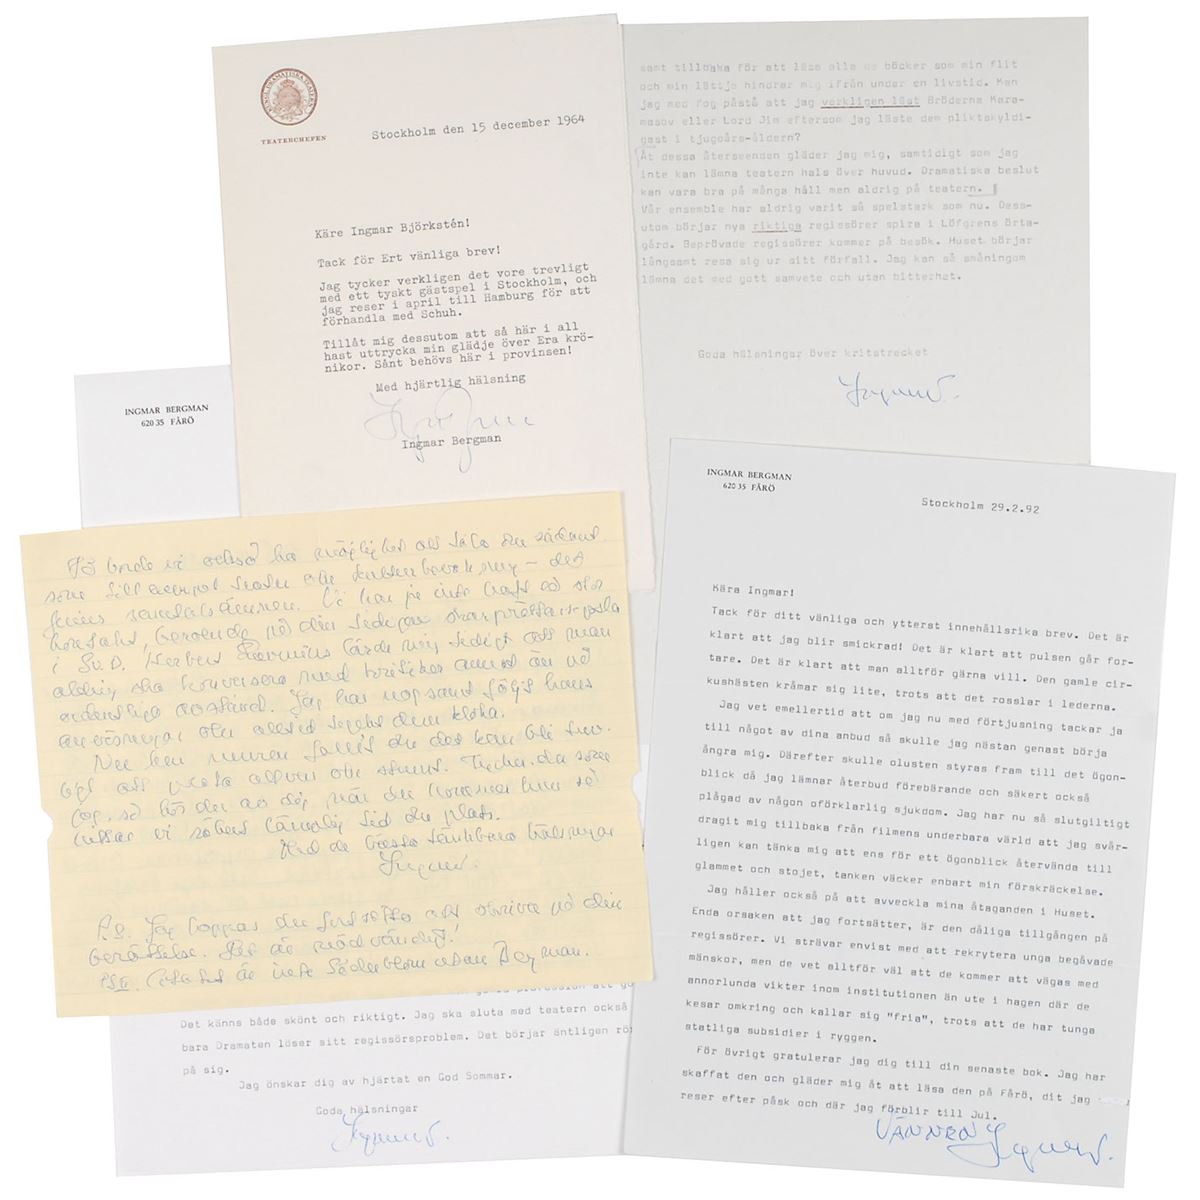 KUNGL. DRAMATISKA TEATERN
TEATERCHEFEN
Stockholm den 15 december 1964
Käre Ingmar Björkstén!
Tack för Ert vänliga brev!
Jag tycker verkligen det vore trevligt
med ett tyskt gästspel i Stockholm, och
jag reser i april till Hamburg för att
förhandla med Schuh.
Tillåt mig dessutom att så här i all
hast uttrycka min glädje över Era krö-
nikor. Sånt behövs här i provinsen!
Med hjärtlig hälsning
Ingmar Bergman
samt tillbaka för att läsa alla de böcker som min flit
och min lättje hindrar mig ifrån under en livstid. Kan
jag med fog påstå att jag verkligen läst Bröderna Kara-
masov eller Lord Jim eftersom jag läste dem pliktskyldi-
gast i tjugoårs-åldern?
Åt dessa återseenden gläder jag mig, samtidigt som jag
inte kan lämna teatern hals över huvud. Dramatiska beslut
kan vara bra på många håll men aldrig på teatern.
Vår ensemble har aldrig varit så spelsterk som nu. Dess-
utom börjar nya riktiga regissörer spira i Löfgrens örta-
gård. Beprövade regissörer kommer på besök. Huset börjar
långsamt resa sig ur sitt förfall. Jag kan så småningom
lämna det med gott samvete och utan bitterhet.
Goda hälsningar över kritstrecket
Ingmar.
INGMAR BERGMAN
620 35 FÅRÖ
Då borde vi också ha möjlighet att tala om sådant
som till exempel teater och kulturbevakning – det
finns samtalsämnen. Vi har ju inte haft så stor
kontakt, beroende på din
i SvD. Herbert Grevenius lärde mig tidigt att man
aldrig ska konversera med kritiker annat än på
ordentligt avstånd. Jag har nog samt följt hans
anvisningar och alltid tyckt dem kloka.
Nu har muren fallit
Med de bästa tänkbara hälsningar
Ingmar.
P.S. Jag hoppas du fortsätter att skriva på din
berättelse. Det är nödvändigt!
PS II. Citatet är inte Söderblom utan Bergman.
Det känns både skönt och riktigt. Jag ska sluta med teatern också
bara Dramaten löser sitt regissörsproblem. Det börjar äntligen rö
på sig.
Jag önskar dig av hjärtat en God Sommar.
Goda hälsningar
Ingmar.
INGMAR BERGMAN
620 35 FÅRÖ
Stockholm 29.2.92
Kära Ingmar!
Tack för ditt vänliga och ytterst innehållsrika brev. Det är
klart att jag blir smickrad! Det är klart att pulsen går for-
tare. Det är klart att man alltför gärna vill. Den gamle cir-
kushästen kråmar sig lite, trots att det rosslar i lederna.
Jag vet emellertid att om jag nu med förtjusning tackar ja
till något av dina anbud så skulle jag nästan genast börja
ångra mig. Därefter skulle olusten styras fram till det ögon-
blick då jag lämnar återbud förebärande och säkert också
plågad av någon oförklarlig sjukdom. Jag har nu så slutgiltigt
dragit mig tillbaka från filmens underbara värld att jag svår-
ligen kan tänka mig att ens för ett ögonblick återvända till
glammet och stojet, tanken väcker enbart min förskräckelse.
Jag håller också på att avveckla mina åtaganden i Huset.
Enda orsaken att jag fortsätter, är den dåliga tillgången på
regissörer. Vi strävar envist med att rekrytera unga begåvade
mänskor, men de vet alltför väl att de kommer att vägas med
annorlunda vikter inom institutionen än ute i hagen där de
kesar omkring och kallar sig "fria", trots att de har tunga
statliga subsidier i ryggen.
För övrigt gratulerar jag dig till din senaste bok. Jag har
skaffat den och gläder mig åt att läsa den på Fårö, dit jag
reser efter påsk och där jag förblir till Jul.
VÄNNEN Ingmar.